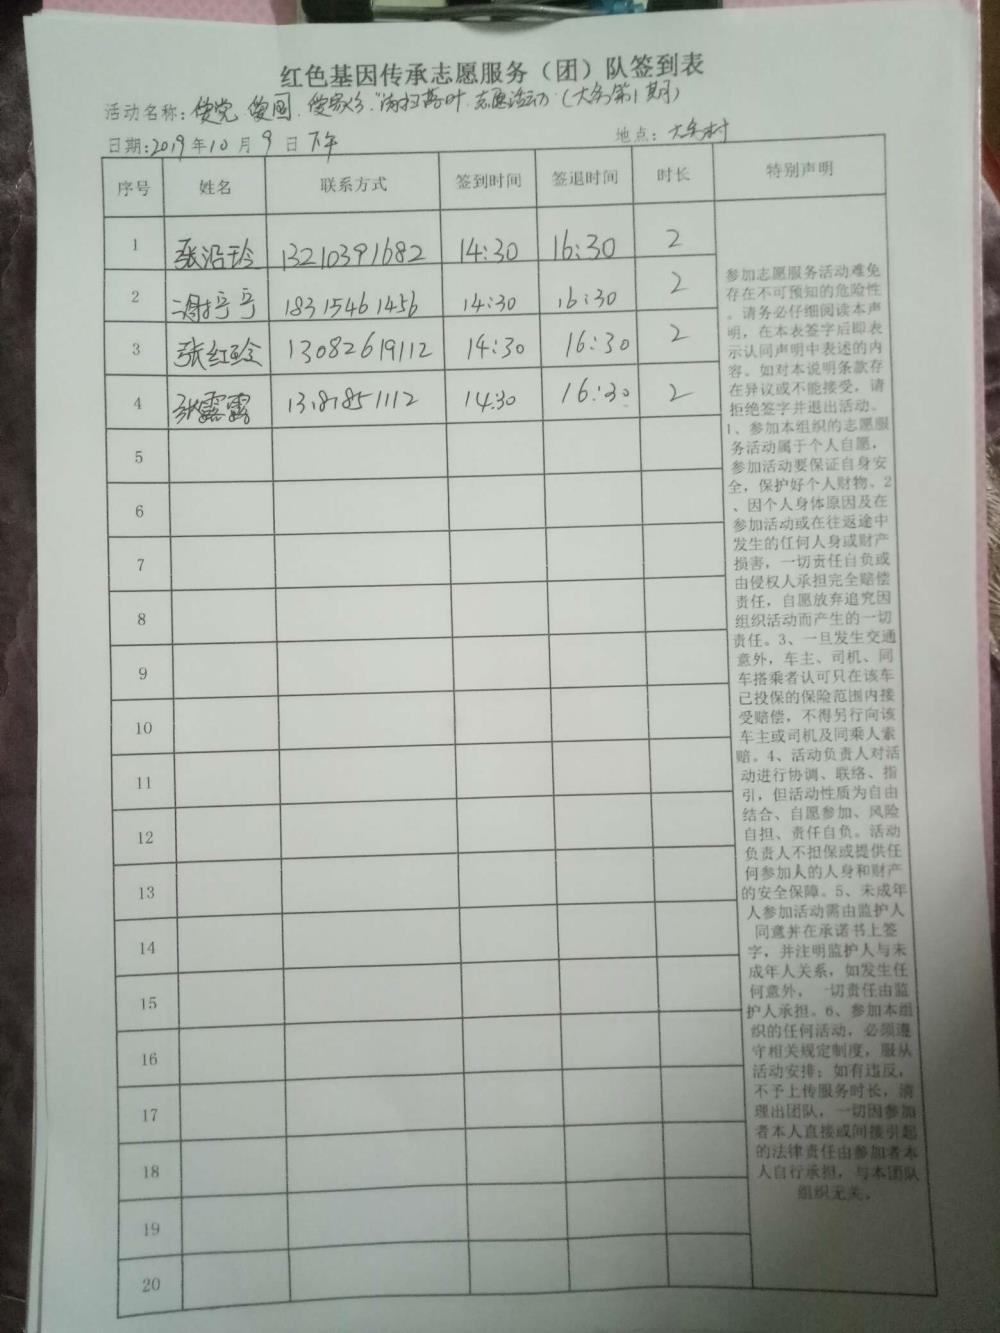 红色基因传承志愿服务（团）队签到表
活动名称：爱党、爱国、爱家乡"清扫落叶"志愿活动（第1期）
日期：2019年10月9日下午 地点：村
序号 姓名 联系方式 签到时间 签退时间 时长 特别声明
1 张沿玲 13210391682 14:30 16:30 2
2 谢 18315461456 14:30 16:30 2
3 张红玲 13082619112 14:30 16:30 2
4 张露露 14:30 16:30 2
5
6
7
8
9
10
11
12
13
14
15
16
17
18
19
20
参加志愿服务活动难免
存在不可预知的危险性
。请务必仔细阅读本声
明，在本表签字后即表
示认同声明中表述的内
容。如对本说明条款存
在异议或不能接受，请
拒绝签字并退出活动。
1、参加本组织的志愿服
务活动属于个人自愿，
参加活动要保证自身安
全，保护好个人财物。2
、因个人身体原因及在
参加活动或在往返途中
发生的任何人身或财产
损害，一切责任自负或
由侵权人承担完全赔偿
责任，自愿放弃追究因
组织活动而产生的一切
责任。3、一旦发生交通
意外，车主、司机、同
车搭乘者认可只在该车
已投保的保险范围内接
受赔偿，不得另行向该
车主或司机及同乘人索
赔。4、活动负责人对活
动进行协调、联络、指
引，但活动性质为自由
结合、自愿参加、风险
自担、责任自负。活动
负责人不担保或提供任
何参加人的人身和财产
的安全保障。5、未成年
人参加活动需由监护人
同意并在承诺书上签
字，并注明监护人与未
成年人关系，如发生任
何意外，一切责任由监
护人承担。6、参加本组
织的任何活动，必须遵
守相关规定制度，服从
活动安排；如有违反，
不予上传服务时长，清
理出团队，一切因参加
者本人直接或间接引起
的法律责任由参加者本
人自行承担，与本团队
组织无关。